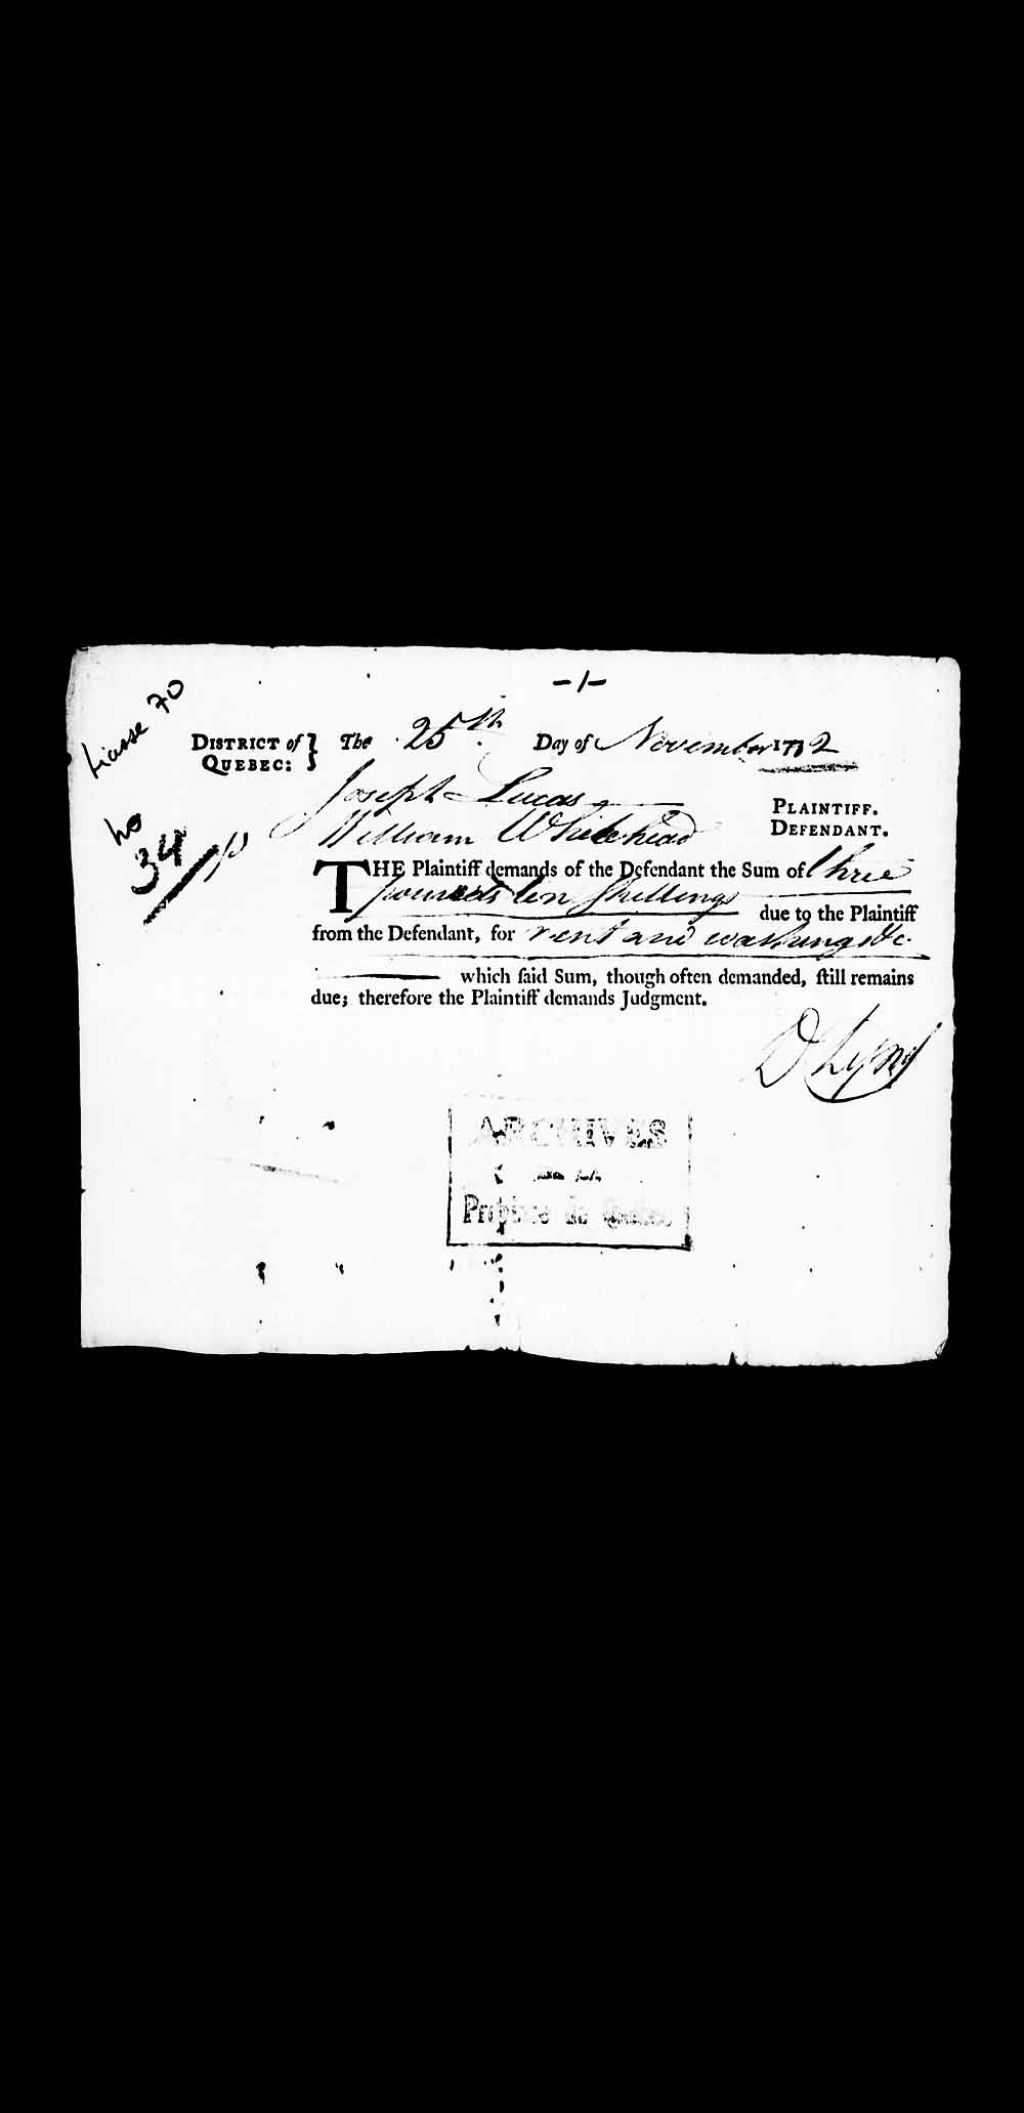 -1-
Liasse 70
DISTRICT of } The 25th Day of November 1772
QUEBEC:
Joseph Lucas PLAINTIFF.
William Whitehead DEFENDANT.
no
34
THE Plaintiff demands of the Defendant the Sum of three
pounds ten Shillings due to the Plaintiff
from the Defendant, for rent and washing &c.
which ſaid Sum, though often demanded, ſtill remains
due; therefore the Plaintiff demands Judgment.
ARCHIVES
DE LA
Province de Québec